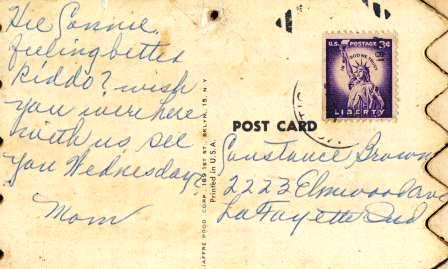 Hie Connie,
feeling better
kiddo? wish
you were here
with us, see
you Wednesday,
Mom
U.S. POSTAGE 3¢
IN GOD WE TRUST
LIBERTY
POST CARD
Constance Brown
2223 Elmwood Ave
LaFayette Ind
FOOD CORP. 189 1ST ST. BKLYN. 15, N.Y.
Printed in U.S.A.